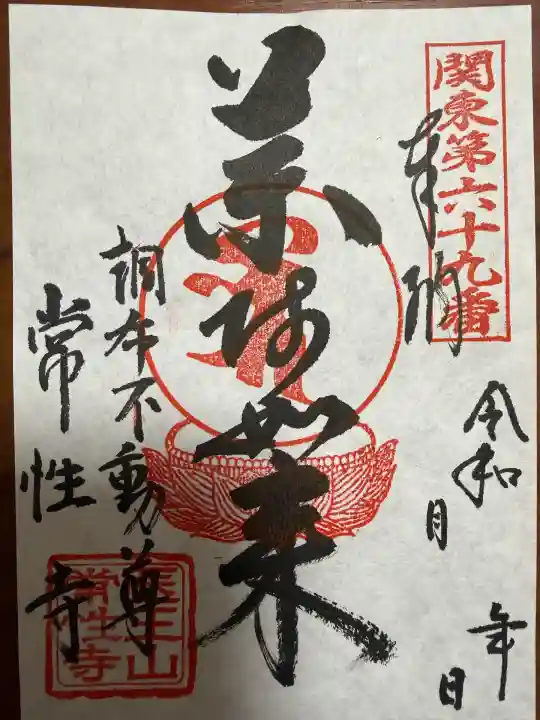 関東第六十九番
奉拝
令和 年
月 日
薬師如来
調布不動尊
常性寺
医王山
常性寺